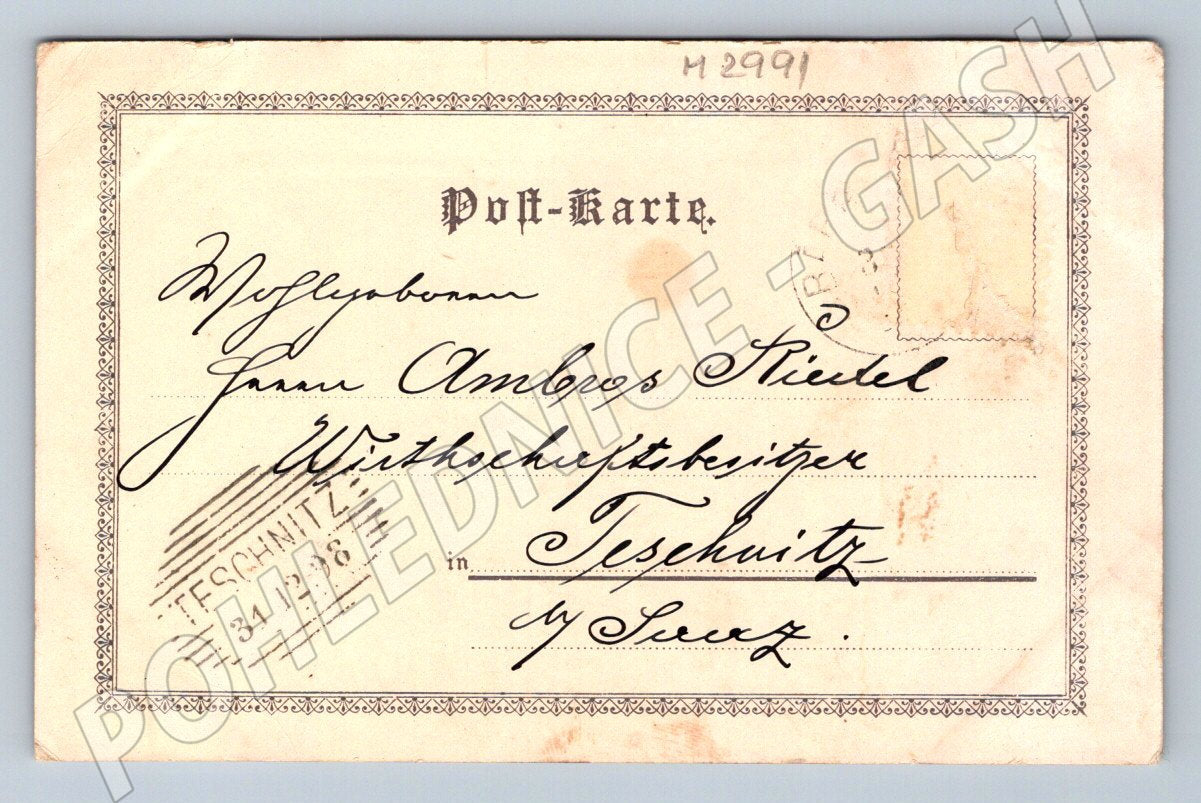 M 2991
Post-Karte.
Wohlgeboren
Herrn Ambros Riedel
Wirthschaftsbesitzer
in Teschnitz
b/ Saaz.
TESCHNITZ
31.12.98
POHLEDNICE - GASH